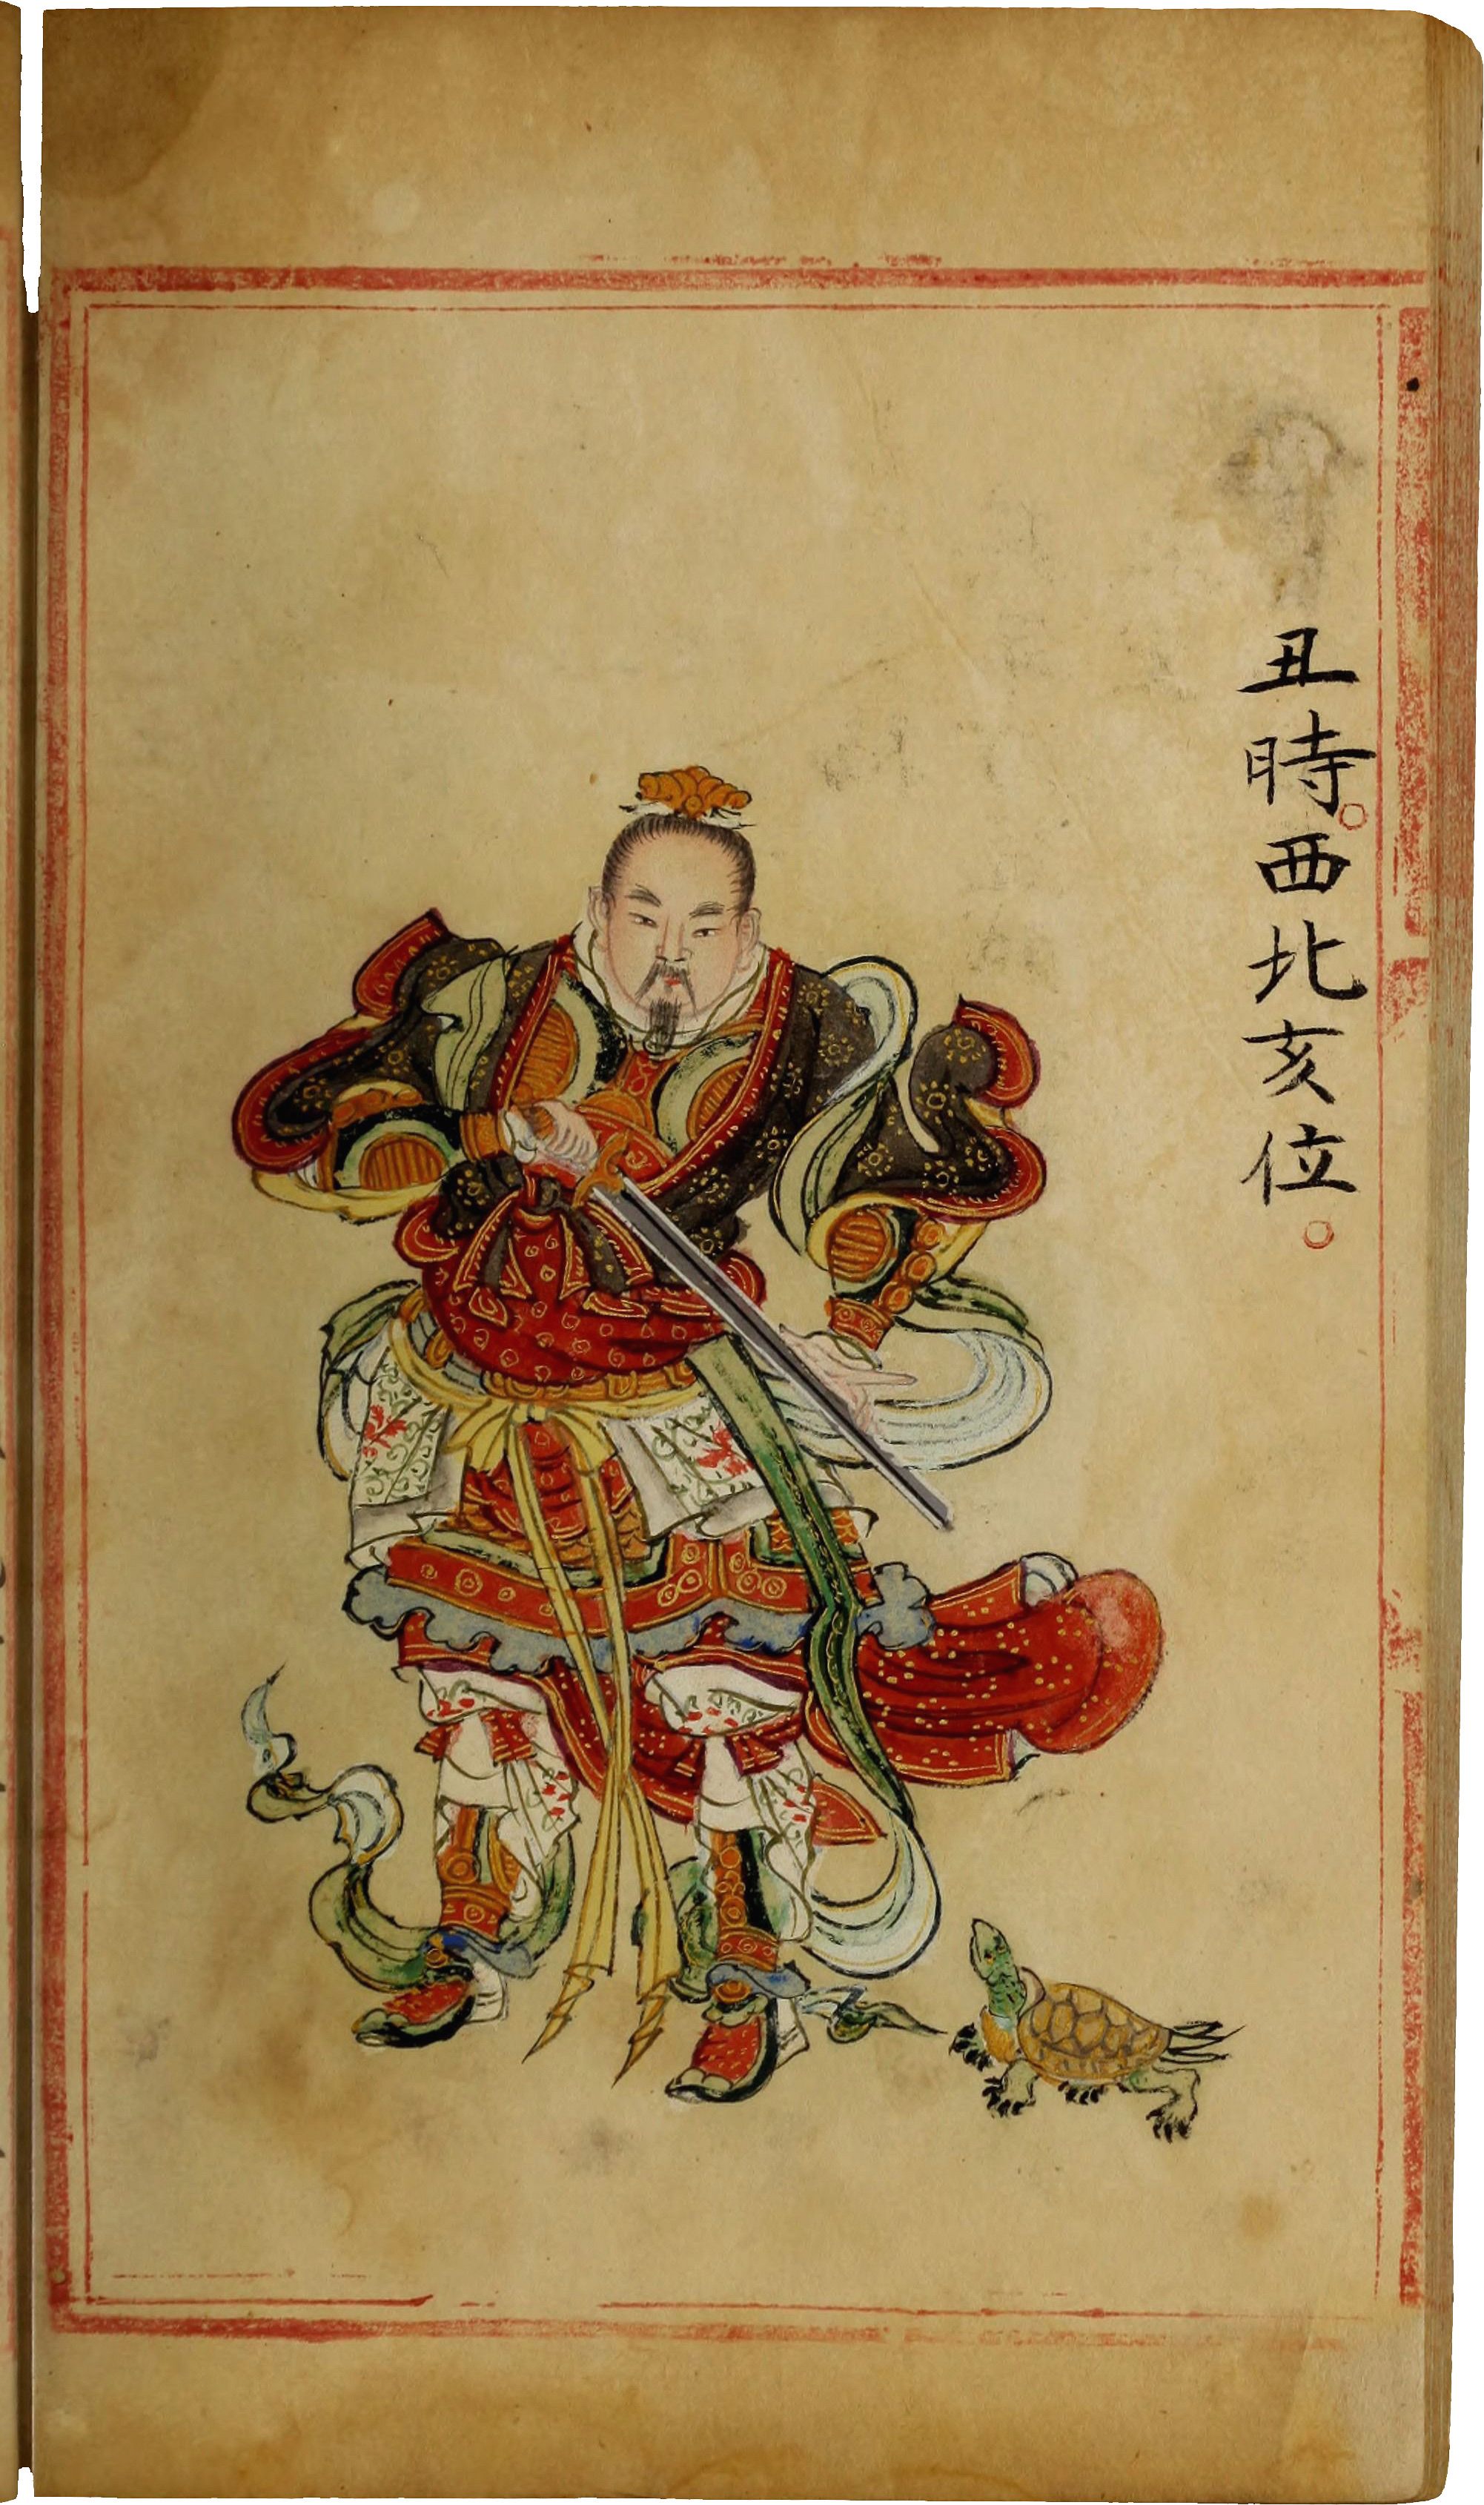 丑時。西北亥位。